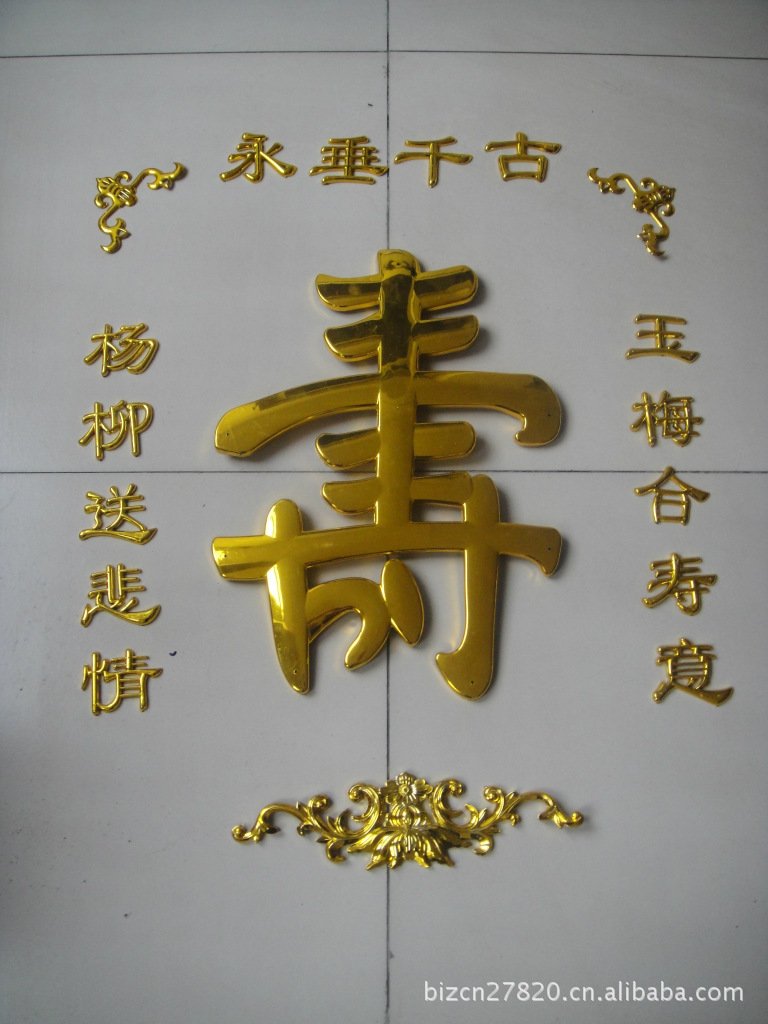 永垂千古
寿
玉梅含寿意
杨柳送悲情
bizcn27820.cn.alibaba.com